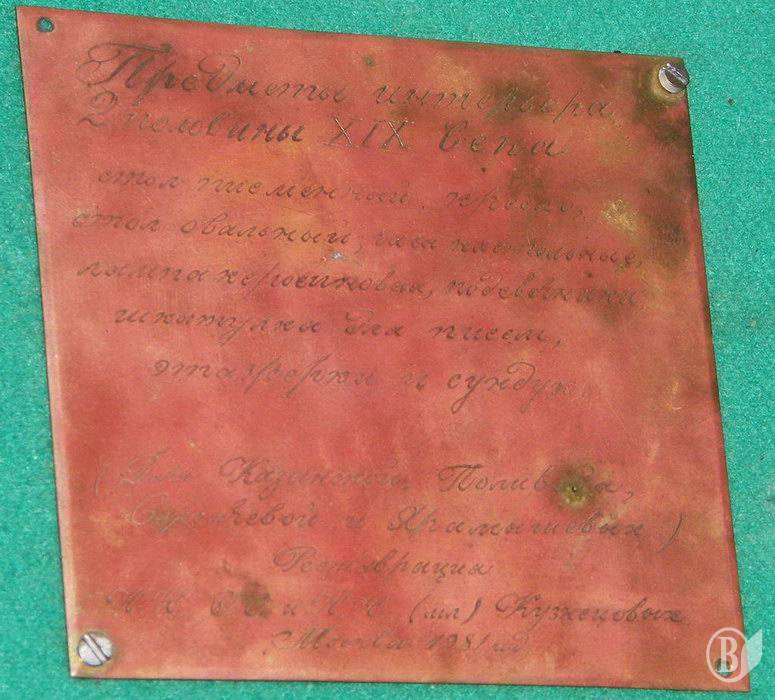 Предметы интерьера
2 половины XIX века
стол писменный, кресло,
стол овальный, часы настольные,
лампа керосиновая, подсвечники
шкатулка для писем,
этажерки и сундук.
Казанской, Поливода,
и Ярамышевых)
Реставрация
Н.Н. и Н.Н. (мл) Кузнецовых
Москва 1981 год
В